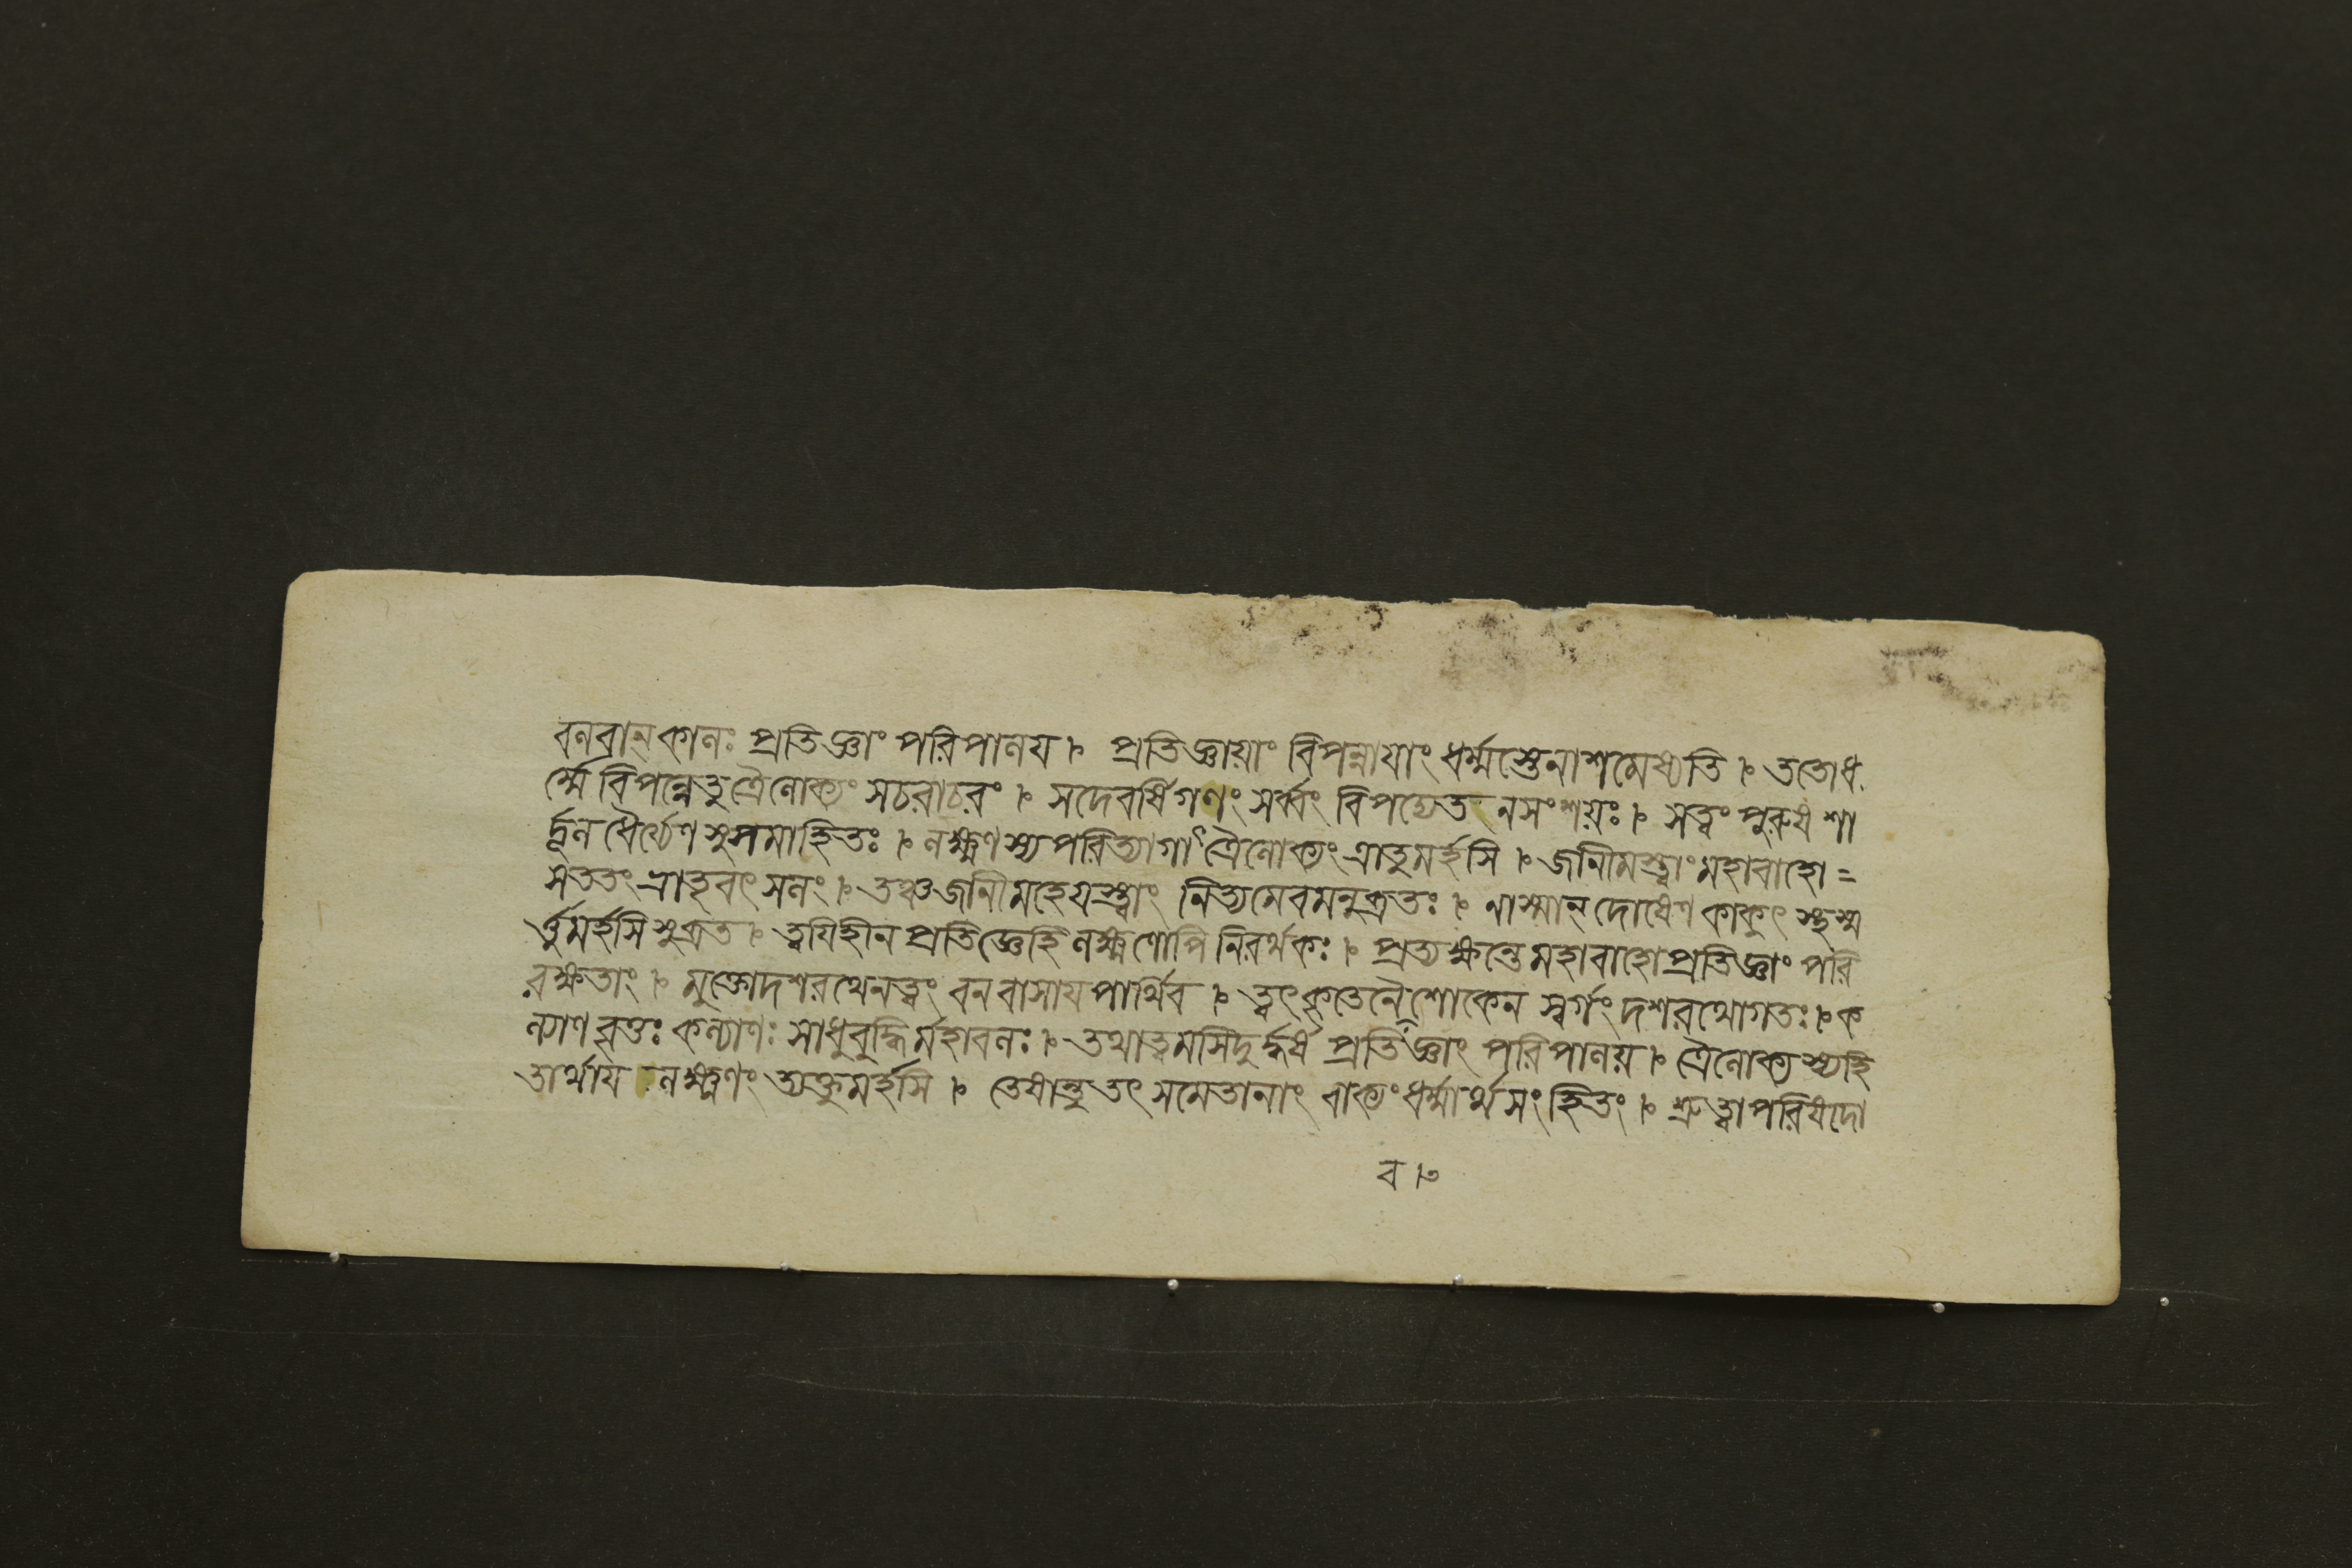 বলবান্ কালঃ প্রতিজ্ঞাং পরিপালয়। প্রতিজ্ঞায়াং বিপন্নায়াং ধর্ম্মস্তেনাশমেষ্যতি। ততোধ
র্ম্মে বিপন্নেতু ত্রৈলোক্যং সচরাচরং। সদেবর্ষিগণং সর্ব্বং বিপদ্যেত নসংশয়ঃ। সত্বং পুরুষশা
র্দ্দূল ধৈর্য্যেণ সুসমাহিতঃ। লক্ষ্মণস্য পরিত্যাগাৎ ত্রৈলোক্যং ত্রাতুমর্হসি। জানীমস্ত্বাং মহাবাহো =
সততং ভ্রাতৃবৎসলং। তঞ্চ জানীমহে যস্ত্বাং নিত্যমেবমনুব্রতঃ। নাস্মান্ দোষেণ কাকুৎস্থ স্ম
র্ত্তুমর্হসি সুব্রত। ত্বয়ি হীনপ্রতিজ্ঞেহি লক্ষ্মণোপি নিরর্থকঃ। প্রত্যক্ষন্তে মহাবাহো প্রতিজ্ঞাং পরি
রক্ষতাং। মুক্তোদশরথেনত্বং বনবাসায় পার্থিব। ত্বৎকৃতেনৈ শোকেন স্বর্গং দশরথোগতঃ। ক
ল্যাণবৃত্তঃ কল্যাণঃ সাধুবুদ্ধির্মহাবলঃ। তথাত্বমসি দুর্দ্ধর্ষ প্রতিজ্ঞাং পরিপালয়। ত্রৈলোক্যস্যহি
তার্থায় লক্ষ্মণং ত্যক্তুমর্হসি। তেষান্তু তৎ সমেতানাং বাক্যং ধর্ম্মার্থসংহিতং। শ্রুত্বা পরিষদো
ব।